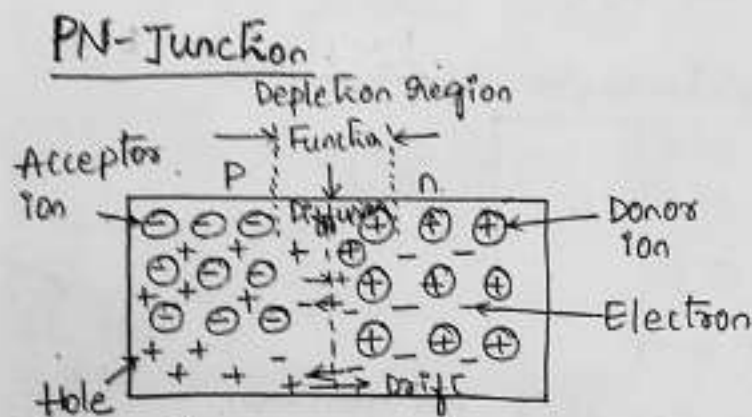 PN-Junction
Depletion region
Function
Acceptor
ion
P
n
Diffusion
Donor
ion
Electron
Hole
Drift